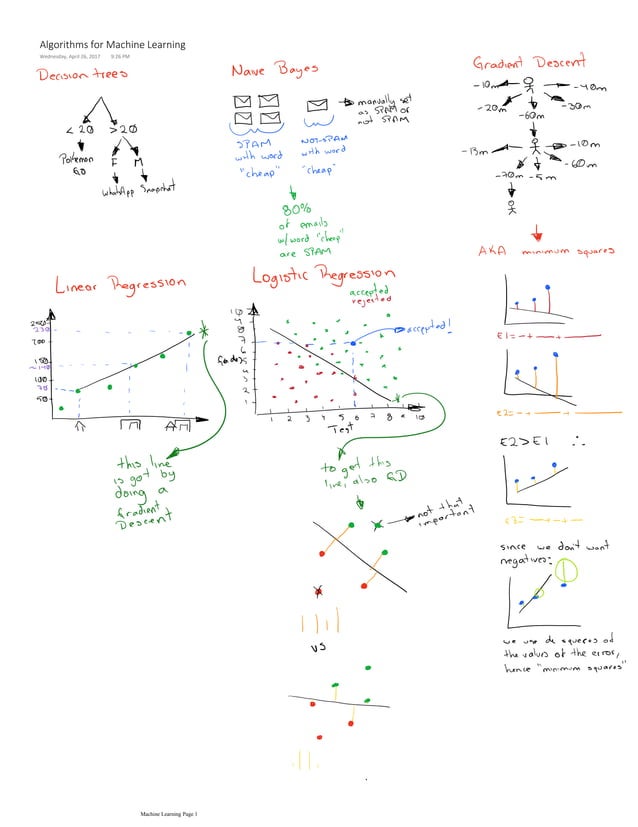 Algorithms for Machine Learning
Wednesday, April 26, 2017 9:26 PM
Decision trees
< 20 > 20
Pokemon
GO
F M
WhatsApp Snapchat
Naive Bayes
manually set
as SPAM or
not SPAM
SPAM
with word
"cheap"
NOT-SPAM
with word
"cheap"
80%
of emails
w/word "cheap"
are SPAM
Gradient Descent
-10m -40m
-20m -30m
-60m
-13m -10m
-60m
-70m -5m
AKA minimum squares
E1= - + - + -
E2= - + - + -
E2>E1 ∴
E3= - + - + -
since we don't want
negatives:
we use de squeres of
the values of the error,
hence "minimum squares"
Linear Regression
200
150
100
70
50
this line
is got by
doing a
Gradient
Descent
Logistic Regression
accepted
rejected
10
9
8
7
6
Grades
4
3
2
1
accepted!
1 2 3 4 5 6 7 8 9 10
Test
to get this
line, also GD
not that
important
vs
Machine Learning Page 1